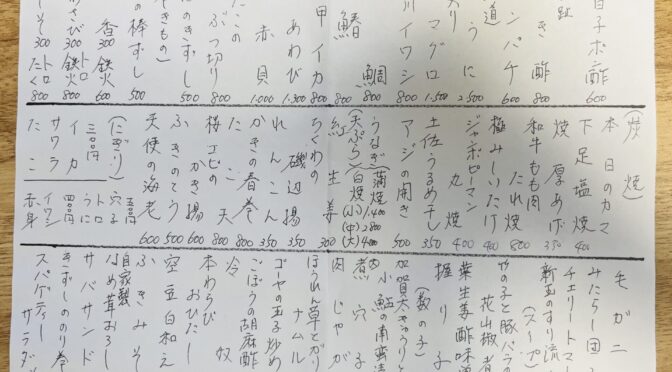 白子ポン酢 600
き 酢
ンパチ 600
うに 2500
マグロ 1.500
川イワシ 800
鯛 800
鯖 800
甲イカ 800
あわび 1.300
赤貝 1.000
たこのぶつ切り 800
のきずし 500
の棒ずし 800
香 300 鉄火 600
さび 300 トロ鉄火 800
そ 300 トロたく 800
(炭焼)
本日のカマ
下足塩焼 400
焼厚あげ 350
和牛もも肉
たれ焼 800
極みしいたけ 400
ジャンボピーマン
丸焼 400
土佐うるめ干し 350
アジの開き 500
うなぎ(蒲焼 1.400
白焼
(小)
(中) 2800
(大)
(天ぷら)
紅生姜 400
ちくわの
磯辺揚 350
れんこん 350
かきの春巻 800
たこ天 800
桜エビの
かき揚 600
ふきのとう 500
天使の海老 600
(にぎり)
三〇〇円
イカ
サワラ
たこ
五〇〇円
穴子
トロ
うに
四〇〇円
イワシ
赤身
毛ガニ
みたらし団子
チェリートマト
新玉のすり流し
(スープ)
竹の子と豚バラの
花山椒煮
葉生姜酢味噌
握り
(数の子)
加賀太きゅうりと
小鮎の南蛮漬
煮穴子
肉じゃが
ほうれん草とガリ
ナムル
ゴーヤの玉子炒め
ごぼうの胡麻酢
冷奴
本わらび
おひたし
空豆白和え
ふきみそ
自家製
なめ茸おろし
サバサンド
きずしののり巻
スパゲティーサラダ